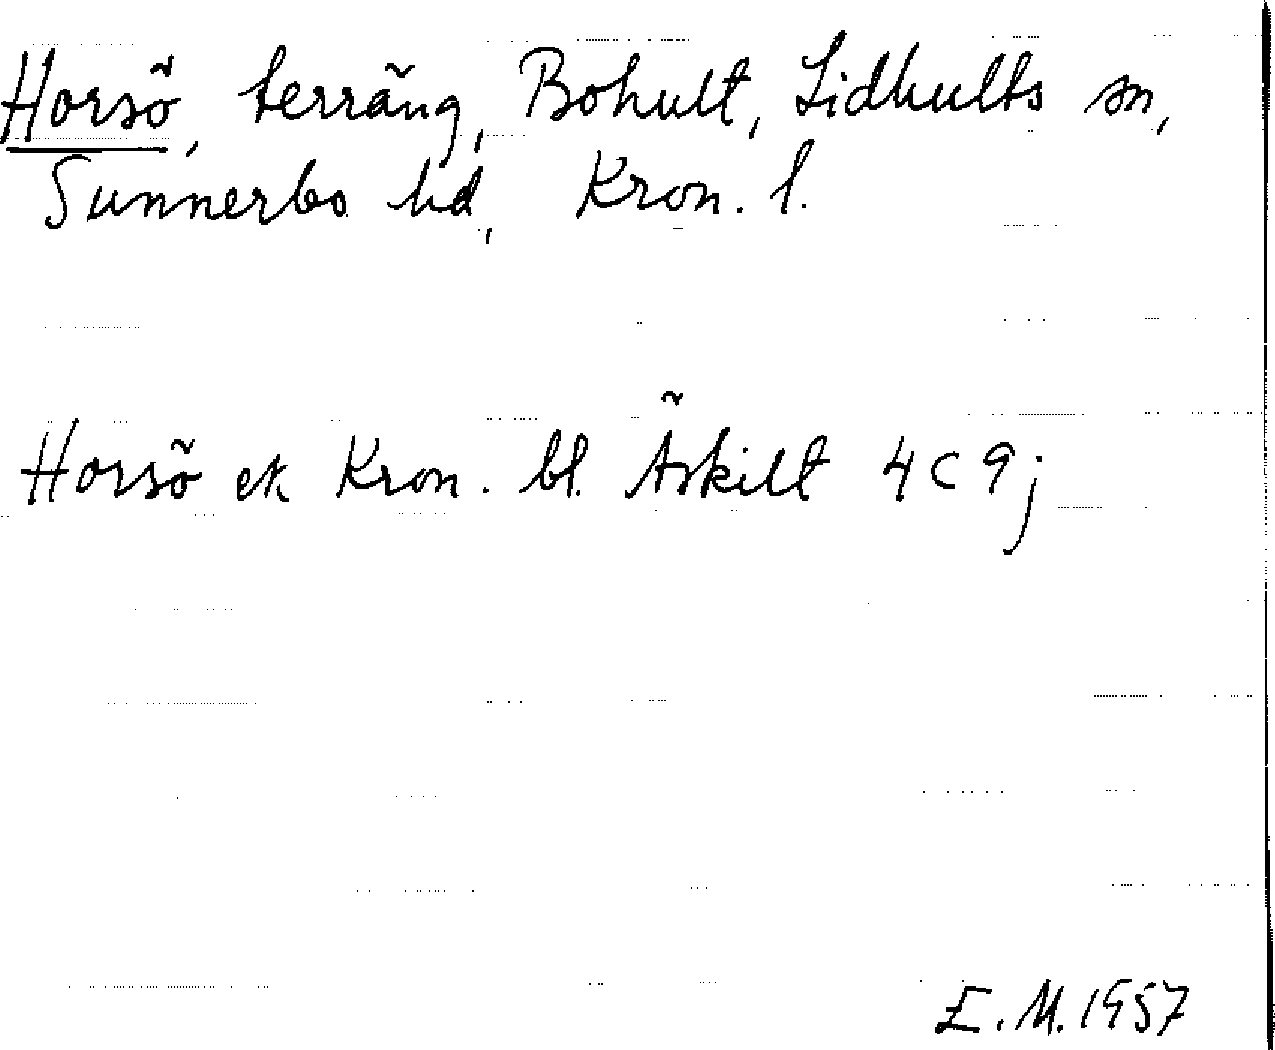 Horsö, terräng, Bohult, Lidhults sn,
Sunnerbo hd, Kron. l.
Horsö ek Kron. bl. Äskilt 4C 9j
E.M. 1957